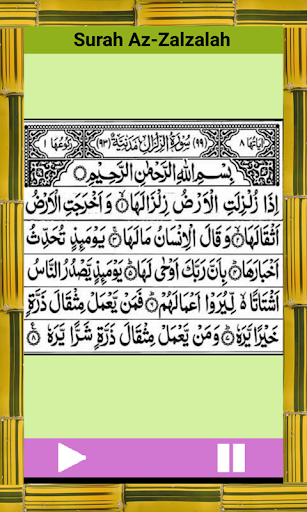 Surah Az-Zalzalah
اٰيَاتُهَا ٨ (٩٩) سُوْرَةُ الزِّلْزَالِ مَدَنِيَّةٌ (٩٣) رُكُوْعُهَا ١
بِسْمِ اللّٰهِ الرَّحْمٰنِ الرَّحِيْمِ
اِذَا زُلْزِلَتِ الْاَرْضُ زِلْزَالَهَا ۝١ وَ اَخْرَجَتِ الْاَرْضُ
اَثْقَالَهَا ۝٢ وَ قَالَ الْاِنْسَانُ مَا لَهَا ۝٣ يَوْمَئِذٍ تُحَدِّثُ
اَخْبَارَهَا ۝٤ بِاَنَّ رَبَّكَ اَوْحٰى لَهَا ۝٥ يَوْمَئِذٍ يَّصْدُرُ النَّاسُ
اَشْتَاتًا ۙ لِّيُرَوْا اَعْمَالَهُمْ ۝٦ فَمَنْ يَّعْمَلْ مِثْقَالَ ذَرَّةٍ
خَيْرًا يَّرَهٗ ۝٧ وَ مَنْ يَّعْمَلْ مِثْقَالَ ذَرَّةٍ شَرًّا يَّرَهٗ ۝٨